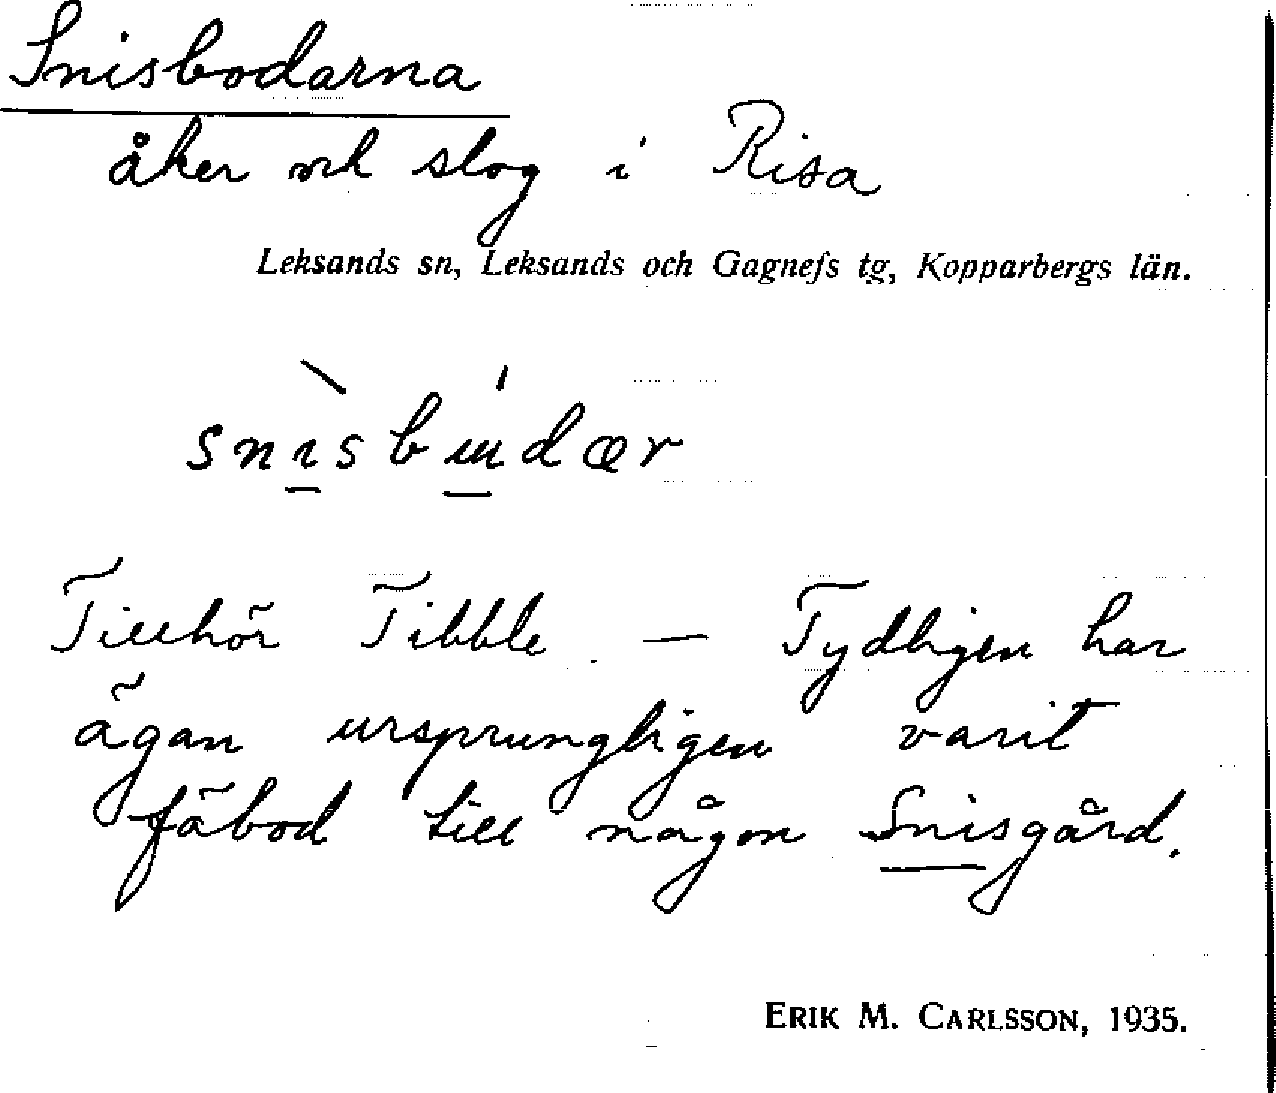 Snisbodarna
åker och slog i Risa
Leksands sn, Leksands och Gagnefs tg, Kopparbergs län.
Tillhör Tibble. — Tydligen har
ägan ursprungligen varit
fäbod till någon Snisgård.
ERIK M. CARLSSON, 1935.